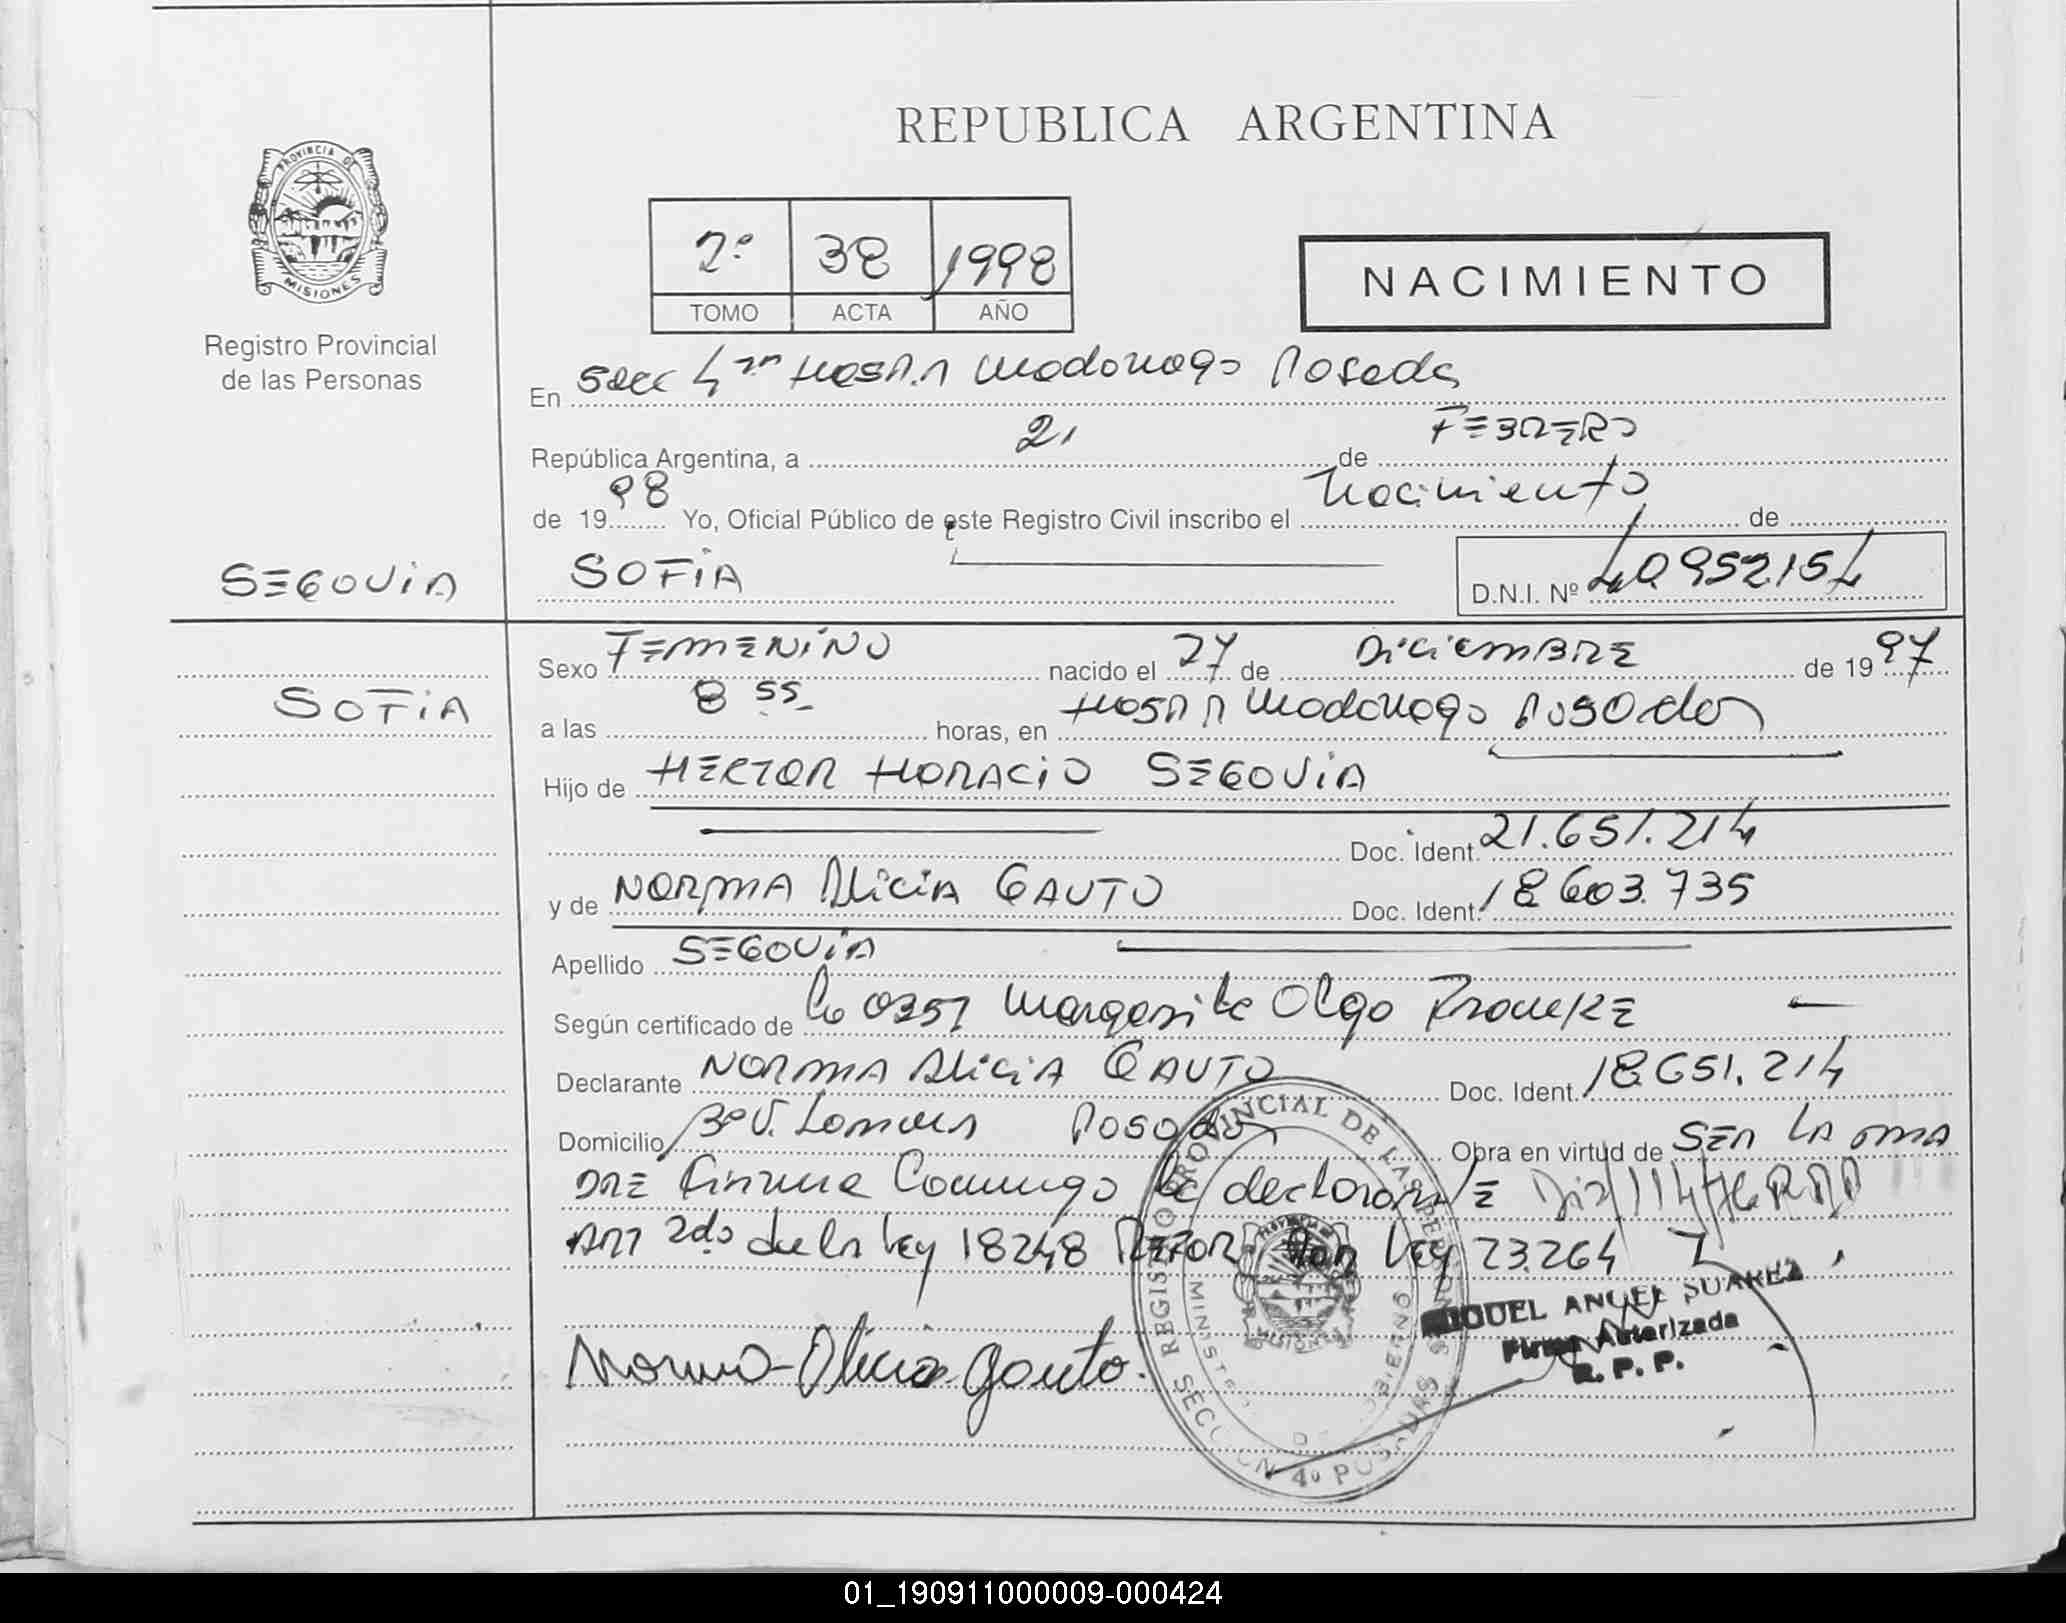 REPUBLICA ARGENTINA
PROVINCIA DE
MISIONES
Registro Provincial
de las Personas
2º 38 1998
TOMO ACTA AÑO
NACIMIENTO
En Secc 4ta Hosp. R Madariaga Posadas
República Argentina, a 21 de FEBRERO
de 1998 Yo, Oficial Público de este Registro Civil inscribo el Nacimiento de
SEGOVIA SOFIA D.N.I. Nº 40952154
Sexo FEMENINO nacido el 27 de DICIEMBRE de 1997
SOFIA
a las 8 55 horas, en HOSP R Madariaga Posadas
Hijo de HECTOR HORACIO SEGOVIA
Doc. Ident. 21.651.214
y de NORMA ALICIA GAUTO Doc. Ident. 18 603.735
Apellido SEGOVIA
Según certificado de Margarita Olga
Declarante NORMA ALICIA GAUTO Doc. Ident. 18.651.214
Domicilio Bº V. Posadas Obra en virtud de SER LA MA
DRE Firma Conmigo la declarante
ART 2do de la Ley 18248 REFOR. POR Ley 23.264
MIGUEL ANGEL SUAREZ
Firma Autorizada
R. P. P.
Norma Alicia Gauto.
REGISTRO PROVINCIAL DE LAS PERSONAS
SECCION 4º POSADAS
01_190911000009-000424